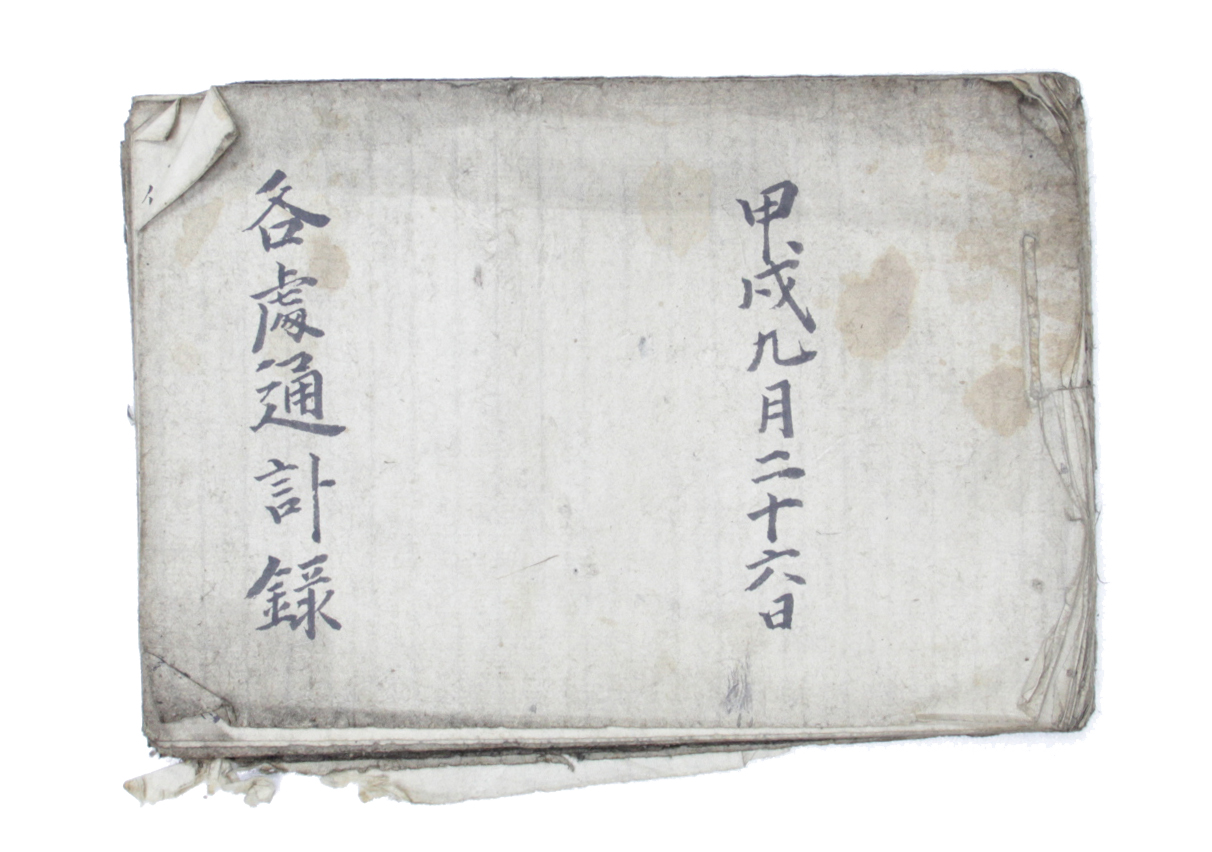 甲戌九月二十六日
各處通訃錄